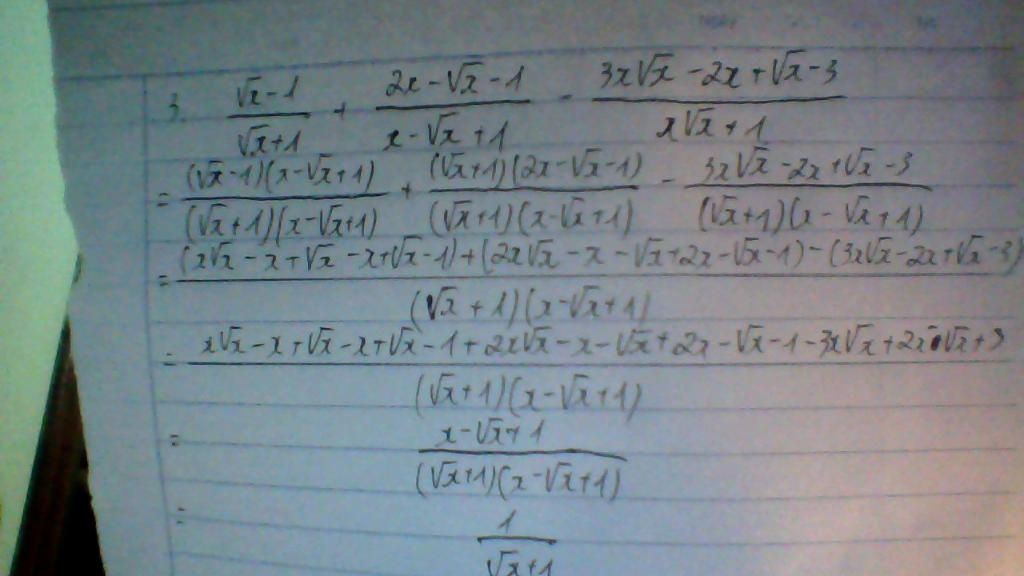 3. \frac{\sqrt{x}-1}{\sqrt{x}+1} + \frac{2x-\sqrt{x}-1}{x-\sqrt{x}+1} - \frac{3x\sqrt{x}-2x+\sqrt{x}-3}{x\sqrt{x}+1}
= \frac{(\sqrt{x}-1)(x-\sqrt{x}+1)}{(\sqrt{x}+1)(x-\sqrt{x}+1)} + \frac{(\sqrt{x}+1)(2x-\sqrt{x}-1)}{(\sqrt{x}+1)(x-\sqrt{x}+1)} - \frac{3x\sqrt{x}-2x+\sqrt{x}-3}{(\sqrt{x}+1)(x-\sqrt{x}+1)}
= \frac{(x\sqrt{x}-x+\sqrt{x}-x+\sqrt{x}-1)+(2x\sqrt{x}-x-\sqrt{x}+2x-\sqrt{x}-1)-(3x\sqrt{x}-2x+\sqrt{x}-3)}{(\sqrt{x}+1)(x-\sqrt{x}+1)}
= \frac{x\sqrt{x}-x+\sqrt{x}-x+\sqrt{x}-1+2x\sqrt{x}-x-\sqrt{x}+2x-\sqrt{x}-1-3x\sqrt{x}+2x-\sqrt{x}+3}{(\sqrt{x}+1)(x-\sqrt{x}+1)}
= \frac{x-\sqrt{x}+1}{(\sqrt{x}+1)(x-\sqrt{x}+1)}
= \frac{1}{\sqrt{x}+1}